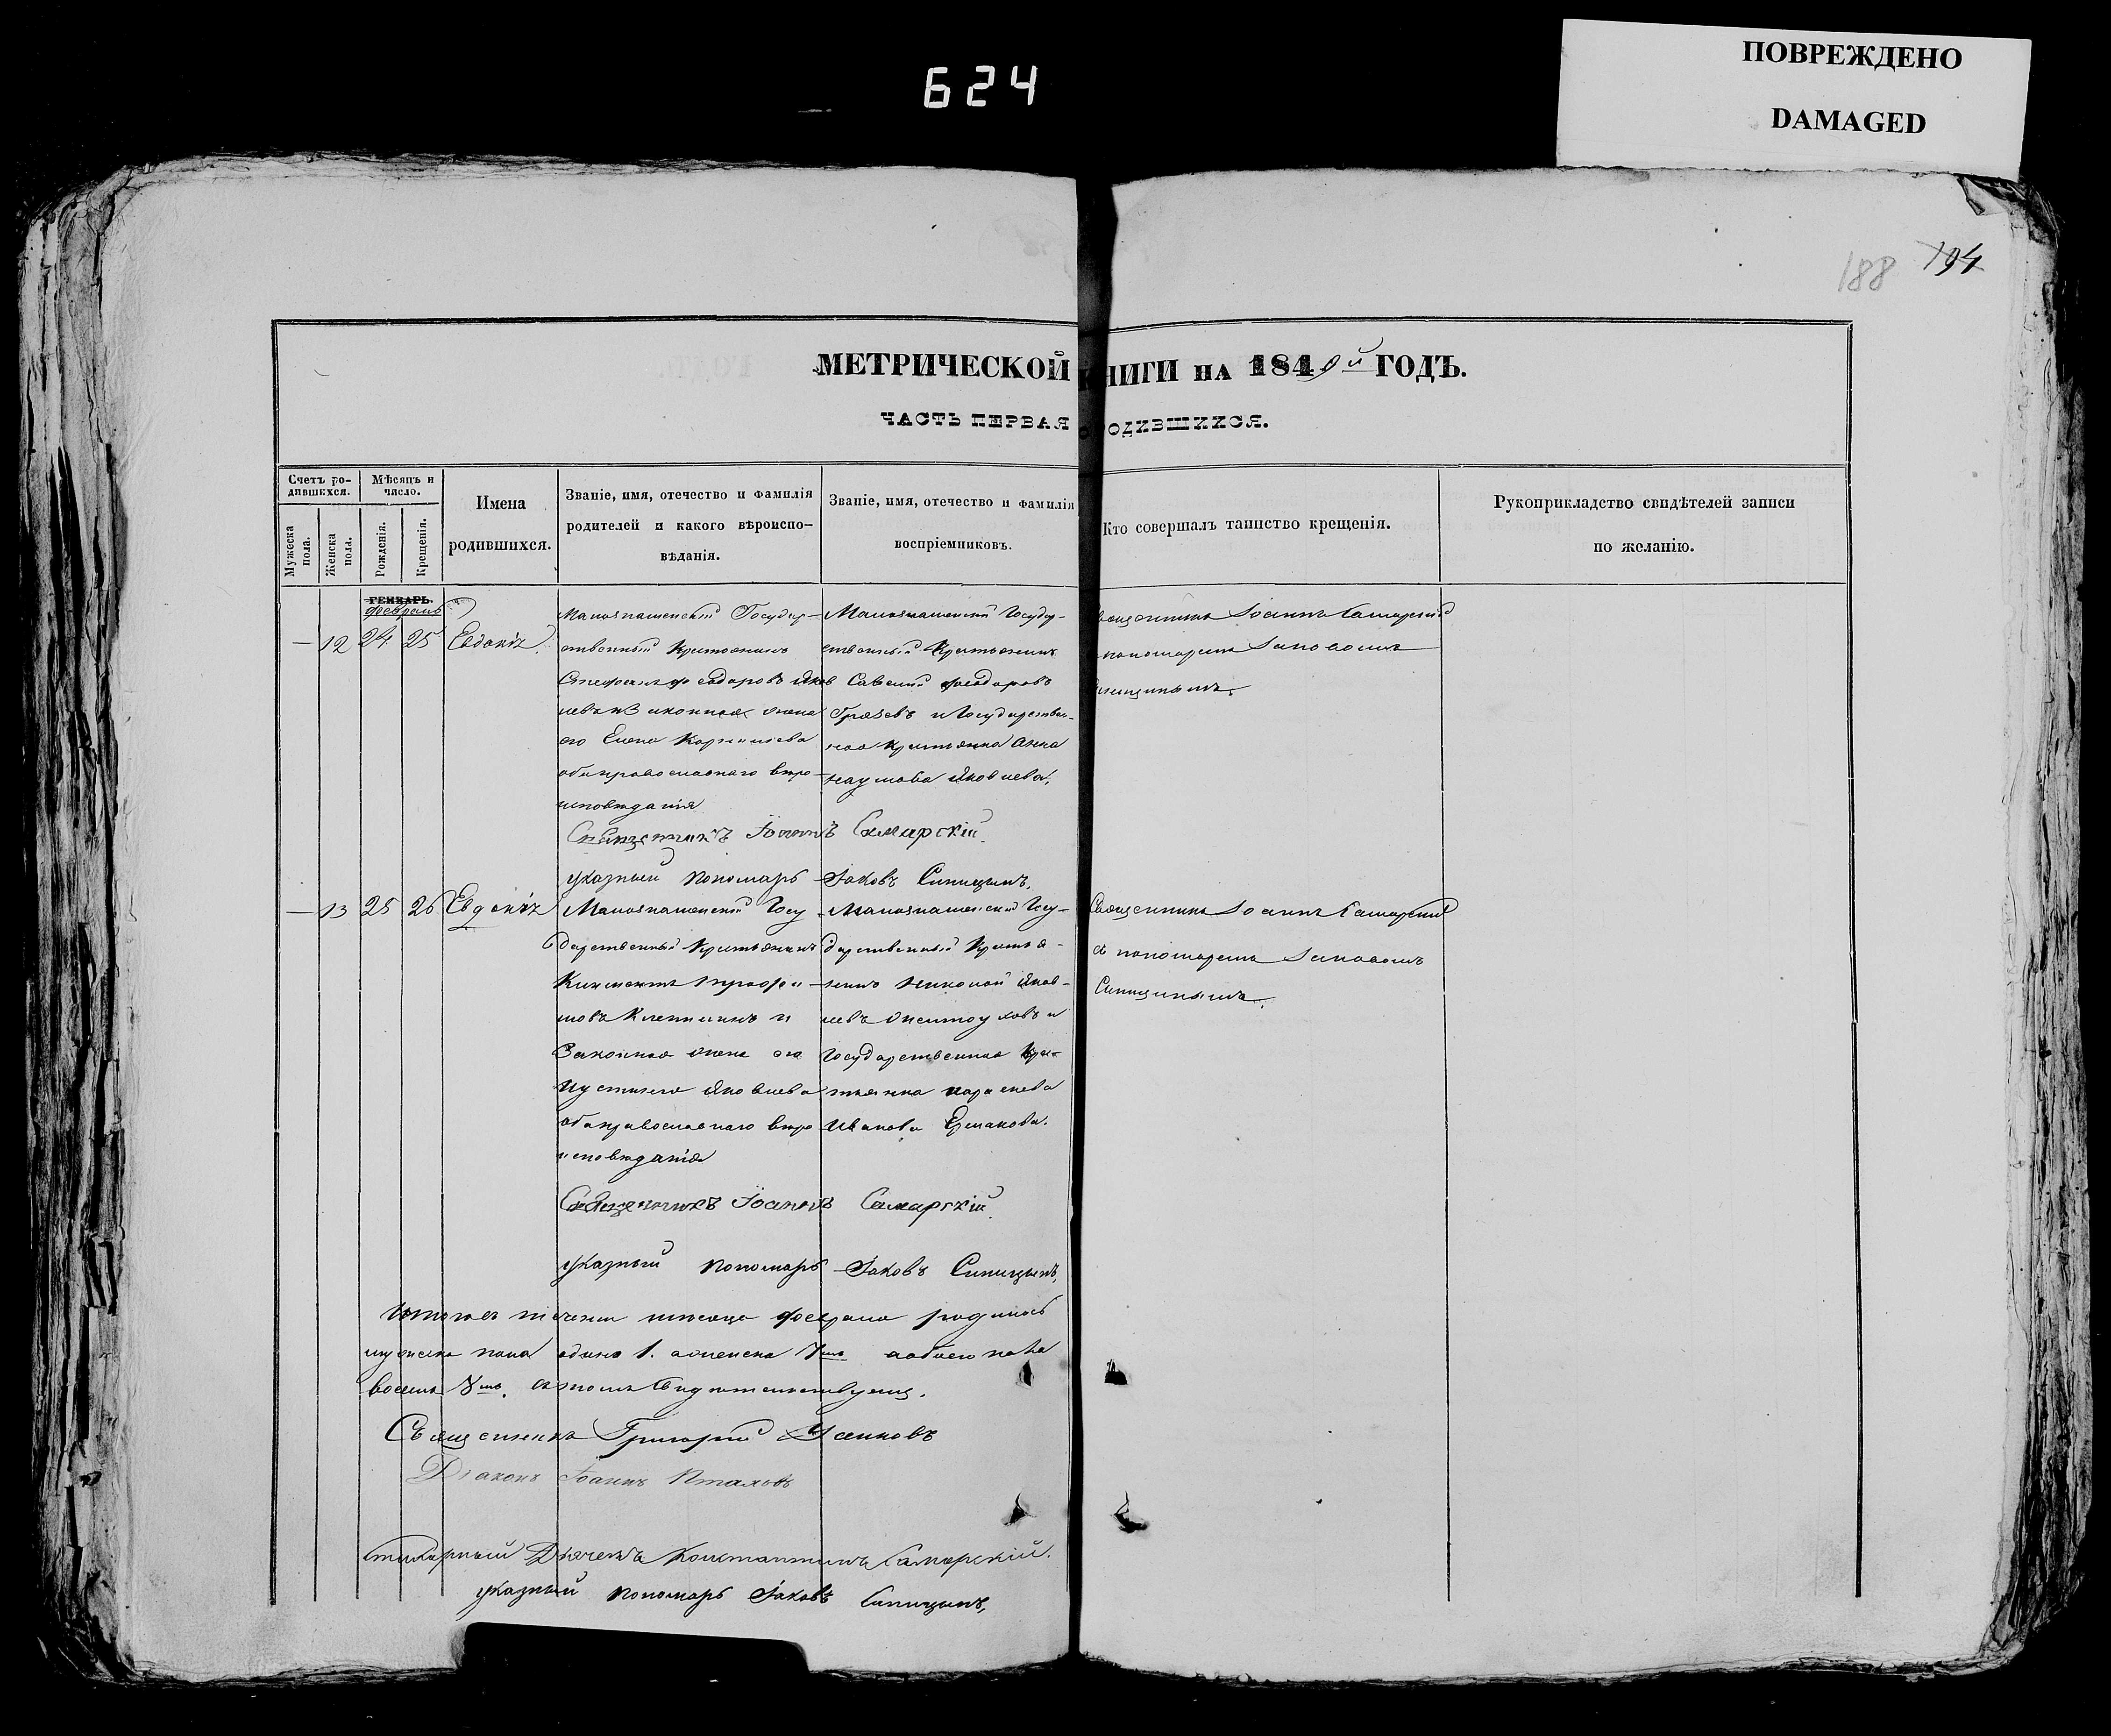 ПОВРЕЖДЕНО
DAMAGED
624
188 194
МЕТРИЧЕСКОЙ КНИГИ НА 1849й ГОДЪ.
ЧАСТЬ ПЕРВАЯ О РОДИВШИХСЯ.
Счетъ ро-
дившихся.
Мужеска пола.
Женска пола.
Мѣсяцъ и
число.
Рожденія.
Крещенія.
Имена
родившихся.
Званіе, имя, отечество и фамилія
родителей и какого вѣроиспо-
вѣданія.
Званіе, имя, отечество и фамилія
воспріемниковъ.
Кто совершалъ таинство крещенія.
Рукоприкладство свидѣтелей записи
по желанію.
ГЕНВАРЬ.
Февраль
— 12 24 25 Евдокія
Государ-
ственный Крестьянинъ
Стефанъ Феодоровъ Яков
левъ и Законная жена
его Елена Корнилева
оба православнаго вѣро-
исповѣданія
Государ-
ственный Крестьянинъ
Савелий Феодоровъ
Грязевъ и Государствен-
ная крестьянка Анна
Наумова Яковлева.
Священникъ Іоаннъ Самарский
пономаремъ Іаковомъ
Синицинымъ.
Священникъ Іоаннъ Самарскій
указный пономарь Іаковъ Синицынъ.
— 13 25 26 Евдокія
Госу
дарственный Крестьянинъ
Климентъ Трофи-
мовъ и
Законная жена его
Яковлева
оба православнаго вѣро
исповѣданія
Госу-
дарственный Крестья-
нинъ Николай Яков-
левъ Желтоуховъ и
Государственная Кре-
стьянка Параскева
Иванова Ермакова.
Священникъ Іоаннъ Самарский
съ пономаремъ Іаковомъ
Синицинымъ.
Священникъ Іоаннъ Самарскій
указный пономарь Іаковъ Синицынъ.
Итого въ теченіи мѣсяца февраля родилось
мужеска пола одинъ 1. а женска 7мь а обоего пола
восемь 8мь. въ томъ свидѣтельствуемъ.
Священникъ Григорий
Діаконъ Іоаннъ Птаховъ
Стихарный Дьячекъ Константинъ Самарскій.
указный пономарь Іаковъ Синицынъ.